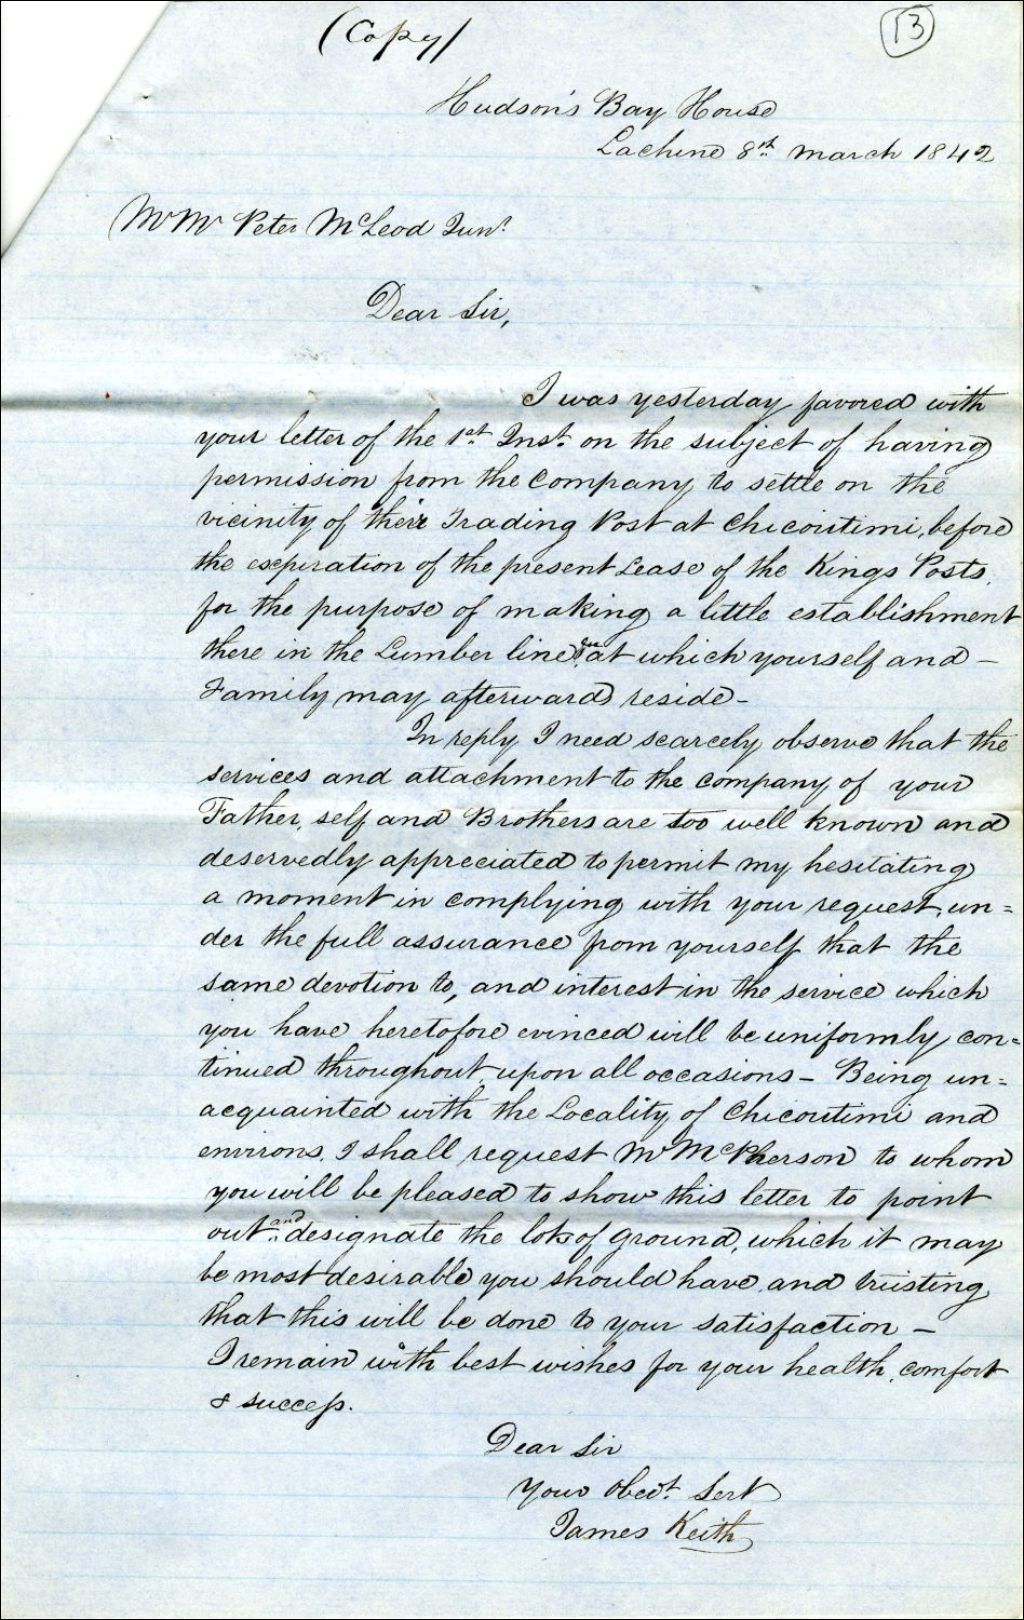 (Copy)
13
Hudson's Bay House
Lachine 8th March 1842
Peter McLeod Junr
Dear Sir,
I was yesterday favored with
your letter of the 1st Inst. on the subject of having
permission from the Company to settle on the
vicinity of their Trading Post at Chicoutimi, before
the expiration of the present Lease of the Kings Posts,
for the purpose of making a little establishment
there in the Lumber line at which yourself and –
Family may afterwards reside –
In reply I need scarcely observe that the
services and attachment to the Company of your
Father, self and Brothers are too well known and
deservedly appreciated to permit my hesitating
a moment in complying with your request, un=
der the full assurance from yourself that the
same devotion to, and interest in the service which
you have heretofore evinced will be uniformly con=
tinued throughout, upon all occasions – Being un=
acquainted with the Locality of Chicoutimi and
environs, I shall request Mr McPherson to whom
you will be pleased to show this letter to point
out and designate the lots of ground, which it may
be most desirable you should have, and trusting
that this will be done to your satisfaction –
I remain with best wishes for your health, comfort
& success.
Dear Sir
Your Obedt. Sert
James Keith